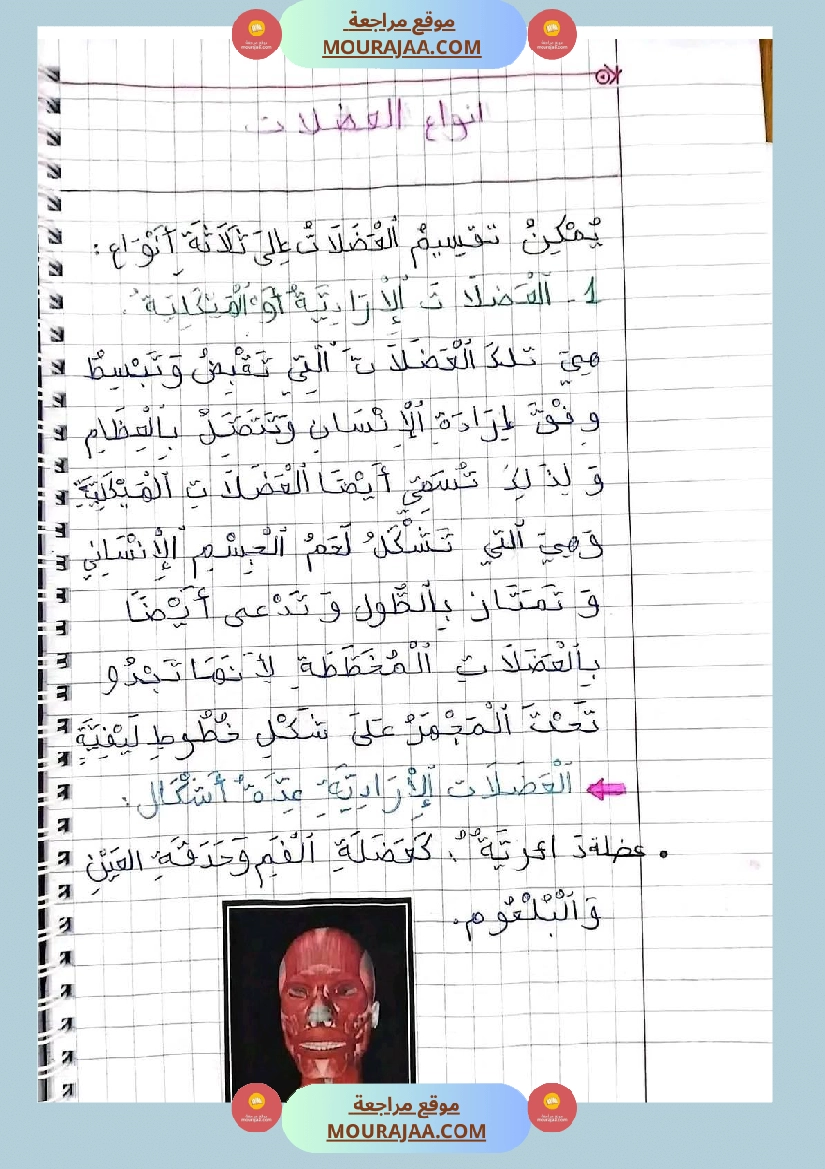 موقع مراجعة
MOURAJAA.COM
انواع العضلات
يُمْكِنُ تقسِيمُ ٱلْعَضَلَاتْ إِلىَ ثَلَاثَةِ أَنْوَاع :
1 - ٱلْعَضلَاتَ ٱلْإِرَادِيَّةُ أَوْ ٱلْهَيْكَلِيَةُ :
هِيَ تلكَ ٱلْعَضَلَاتَ ٱلَّتِي تَقْبِضُ وَتَبْسِطُ
وِفْقَ إِرَادَةِ ٱلْإِنْسَانِ وَتَتَصَّلُ بِٱلْعِظَامِ
وَ لِذَلِكَ تُسَمَّي أَيْضَا ٱلْعَضَلَاتِ ٱلْهَيْكَلِيَّةَ
وَهِيَ ٱلتي تَشَكِّلُ لَحْمُ ٱلْجِسْمِ ٱلْإِنْسَانِي
وَ تَمَتَاز بِٱلطُّول وَ تَدْعى أَيْضَا
بِٱلْعَضَلَاتِ ٱلْمُخَطَّطَةِ لِأَنهَا تَبْدُو
تَحْتَ ٱلْمَجْهَرْ عَلىَ شَكْلِ خُطُوطٍ لَيْفِيَّةٍ
ٱلْعَضَلَات ٱلْإِرَادِيَّةَ عِدَّةُ أَشْكَال :
كَعَضَلَةِ ٱلْفَمِ وَحَدَقَةِ العَيْنِ
وَٱلْبُلْعُوم.
موقع مراجعة
MOURAJAA.COM